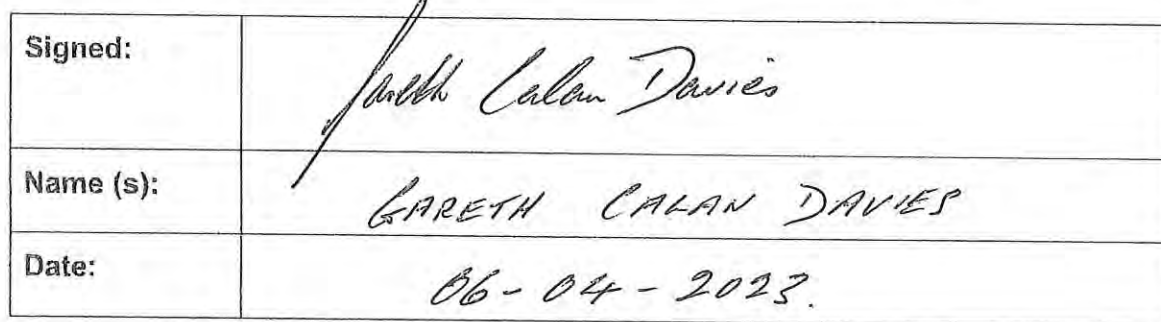 Signed: Gareth Calan Davies
Name (s): GARETH CALAN DAVIES
Date: 06-04-2023.